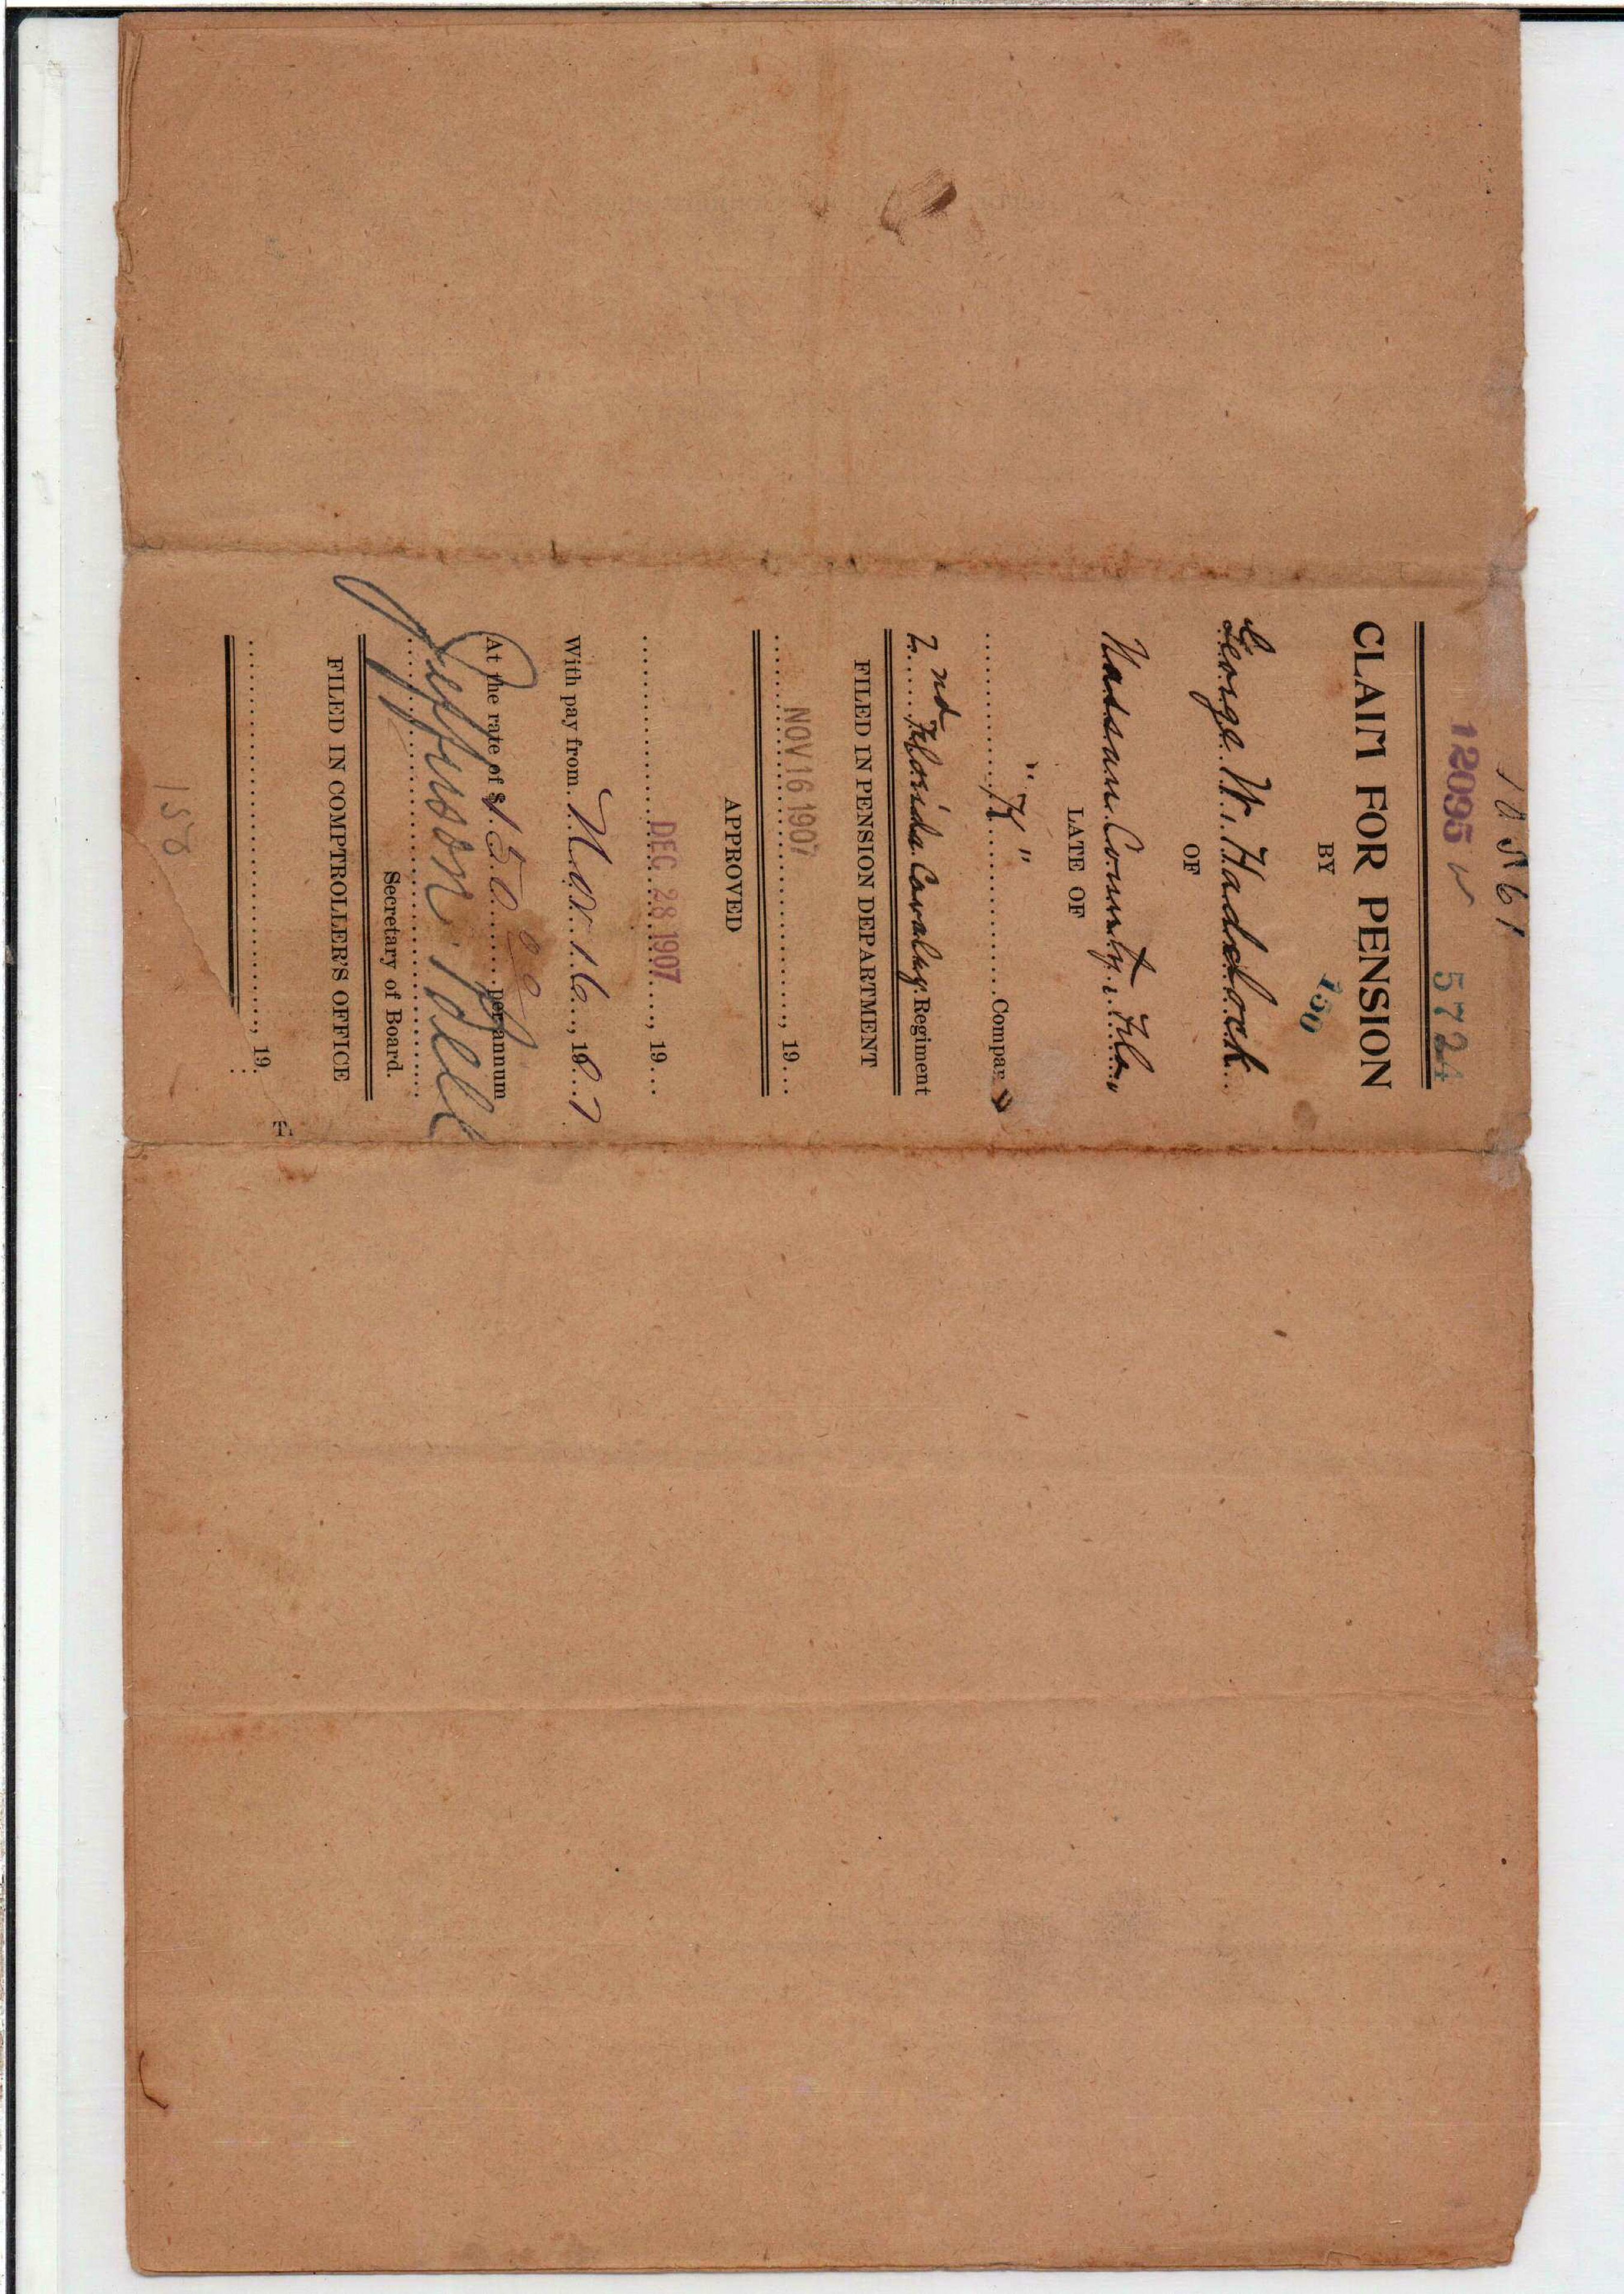 5724
12095
CLAIM FOR PENSION
BY
150
George W. Haddock
OF
Nassau County, Fla.
LATE OF
"K" Compa
2nd Florida Cavalry Regiment
FILED IN PENSION DEPARTMENT
NOV 16 1907, 19
APPROVED
DEC 28 1907, 19
With pay from Nov. 16, 1907
At the rate of $150.00 per annum
Jefferson
Secretary of Board.
FILED IN COMPTROLLER'S OFFICE
, 19
158